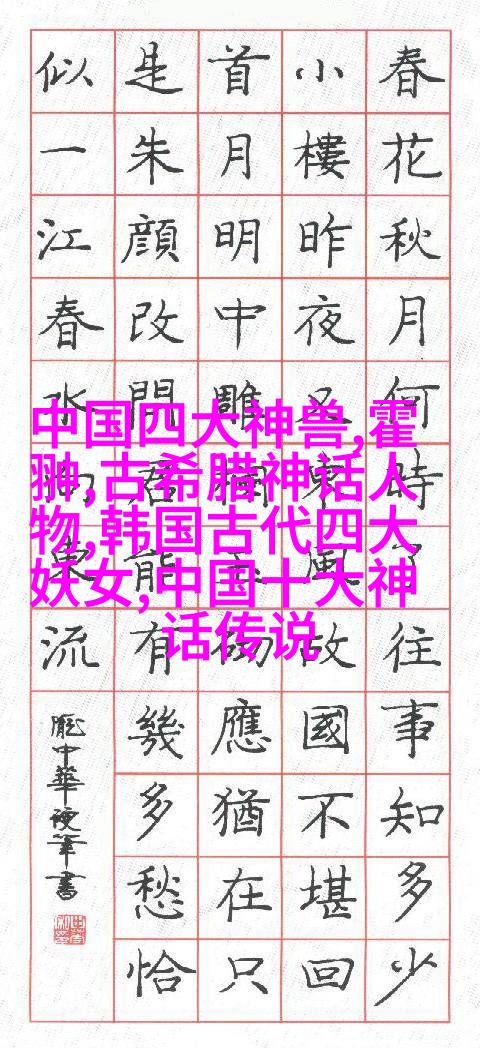 春花秋月何時了往事知多少
小樓昨夜又東風故國不堪回
首月明中雕欄玉砌應猶在只
是朱顔改問君能有幾多愁恰
似一江春水向東流
龐中華硬筆書
中国四大神兽,霍
翀,古希腊神话人
物,韩国古代四大
妖女,中国十大神
话传说